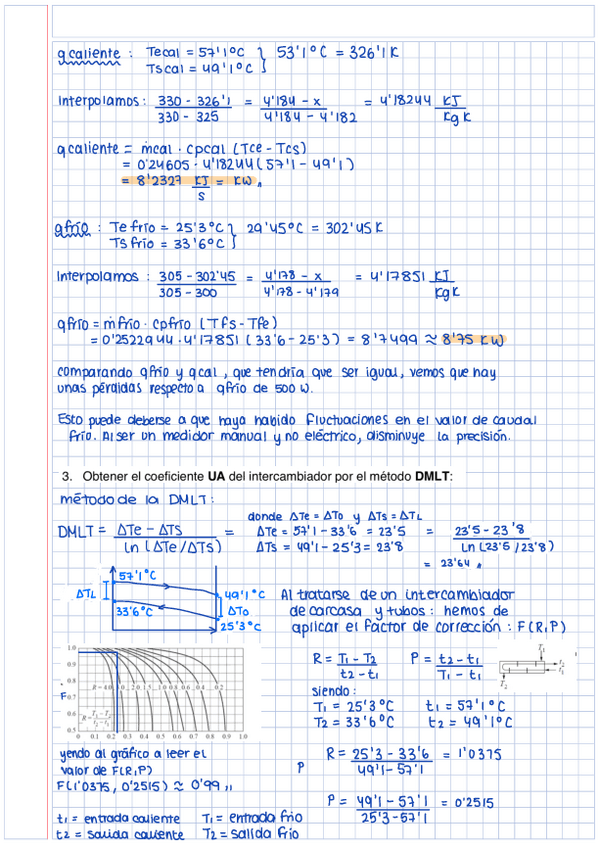 qcaliente : Tecal = 57'1°C } 53'1°C = 326'1K
Tscal = 49'1°C
Interpolamos : (330 - 326'1)/(330 - 325) = (4'184 - x)/(4'184 - 4'182) = 4'18244 KJ/KgK
qcaliente = ṁcal · cpcal (Tce - Tcs)
= 0'24605 · 4'18244 (57'1 - 49'1)
= 8'2327 KJ/s = KW
qfrío : Te frío = 25'3°C } 29'45°C = 302'45K
Ts frío = 33'6°C
Interpolamos : (305 - 302'45)/(305 - 300) = (4'178 - x)/(4'178 - 4'179) = 4'17851 KJ/KgK
qfrío = ṁfrío · cpfrío (Tfs - Tfe)
= 0'2522944 · 4'17851 (33'6 - 25'3) = 8'7499 ≈ 8'75 KW
comparando qfrío y qcal, que tendría que ser igual, vemos que hay
unas pérdidas respecto a qfrío de 500 W.
Esto puede deberse a que haya habido fluctuaciones en el valor de caudal
frío. Al ser un medidor manual y no eléctrico, disminuye la precisión.
3. Obtener el coeficiente UA del intercambiador por el método DMLT:
método de la DMLT :
donde ΔTe = ΔTo y ΔTs = ΔTL
DMLT = (ΔTe - ΔTs)/(Ln (ΔTe/ΔTs)) = ΔTe = 57'1 - 33'6 = 23'5 = (23'5 - 23'8)/(Ln (23'5/23'8))
ΔTs = 49'1 - 25'3 = 23'8
= 23'64
57'1°C
ΔTL
49'1°C
33'6°C
ΔTo
25'3°C
Al tratarse de un intercambiador
de carcasa y tubos : hemos de
aplicar el factor de corrección : F(R,P)
1.0
0.9
0.8
0.7
0.6
0.5
F
R = 4.0 3.0 2.0 1.5 1.0 0.8 0.6 0.4 0.2
R = (T₁ - T₂)/(t₂ - t₁)
0 0.1 0.2 0.3 0.4 0.5 0.6 0.7 0.8 0.9 1.0
P
R = (T₁ - T₂)/(t₂ - t₁) P = (t₂ - t₁)/(T₁ - t₁)
T₁
t₂
t₁
T₂
siendo :
T₁ = 25'3°C t₁ = 57'1°C
T₂ = 33'6°C t₂ = 49'1°C
yendo al gráfico a leer el
valor de F(R,P)
F(1'0375, 0'2515) ≈ 0'99
R = (25'3 - 33'6)/(49'1 - 57'1) = 1'0375
P = (49'1 - 57'1)/(25'3 - 57'1) = 0'2515
t₁ = entrada caliente T₁ = entrada frío
t₂ = salida caliente T₂ = salida frío